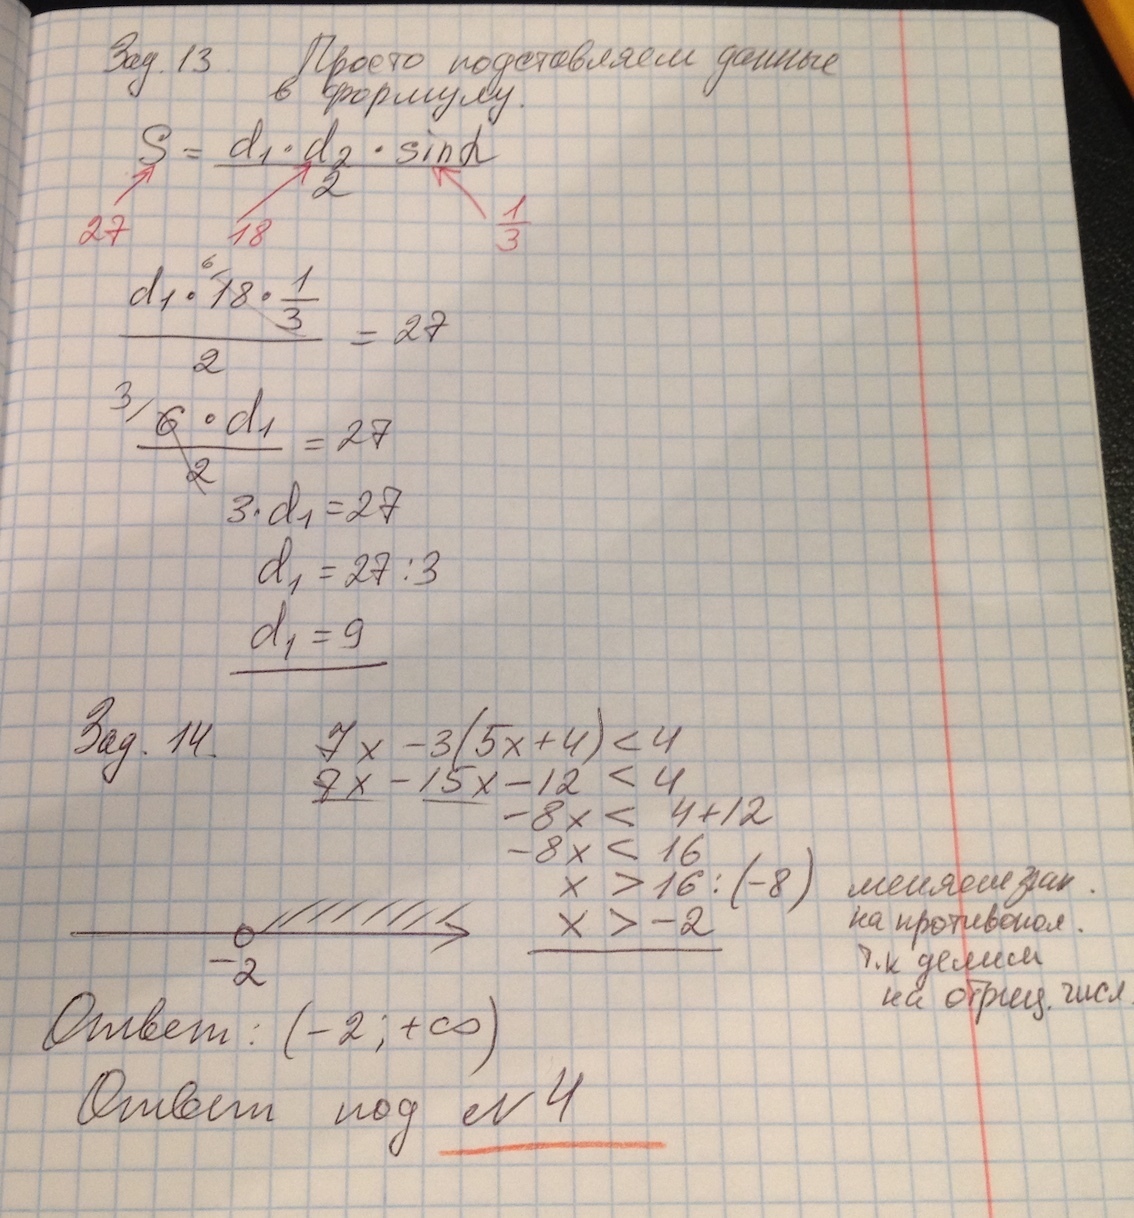 Зад. 13. Просто подставляем данные
в формулу.
S = d₁ · d₂ · sinα / 2
27 18 1/3
d₁ · 18 · 1/3 / 2 = 27
6
3/ 6 · d₁ / 2 = 27
3 · d₁ = 27
d₁ = 27 : 3
d₁ = 9
Зад. 14. 7x - 3(5x+4) < 4
7x - 15x - 12 < 4
-8x < 4+12
-8x < 16
x > 16 : (-8) меняем знак.
x > -2 на противопол.
т.к делим
на отриц. числ.
-2
Ответ: (-2; +∞)
Ответ под №4